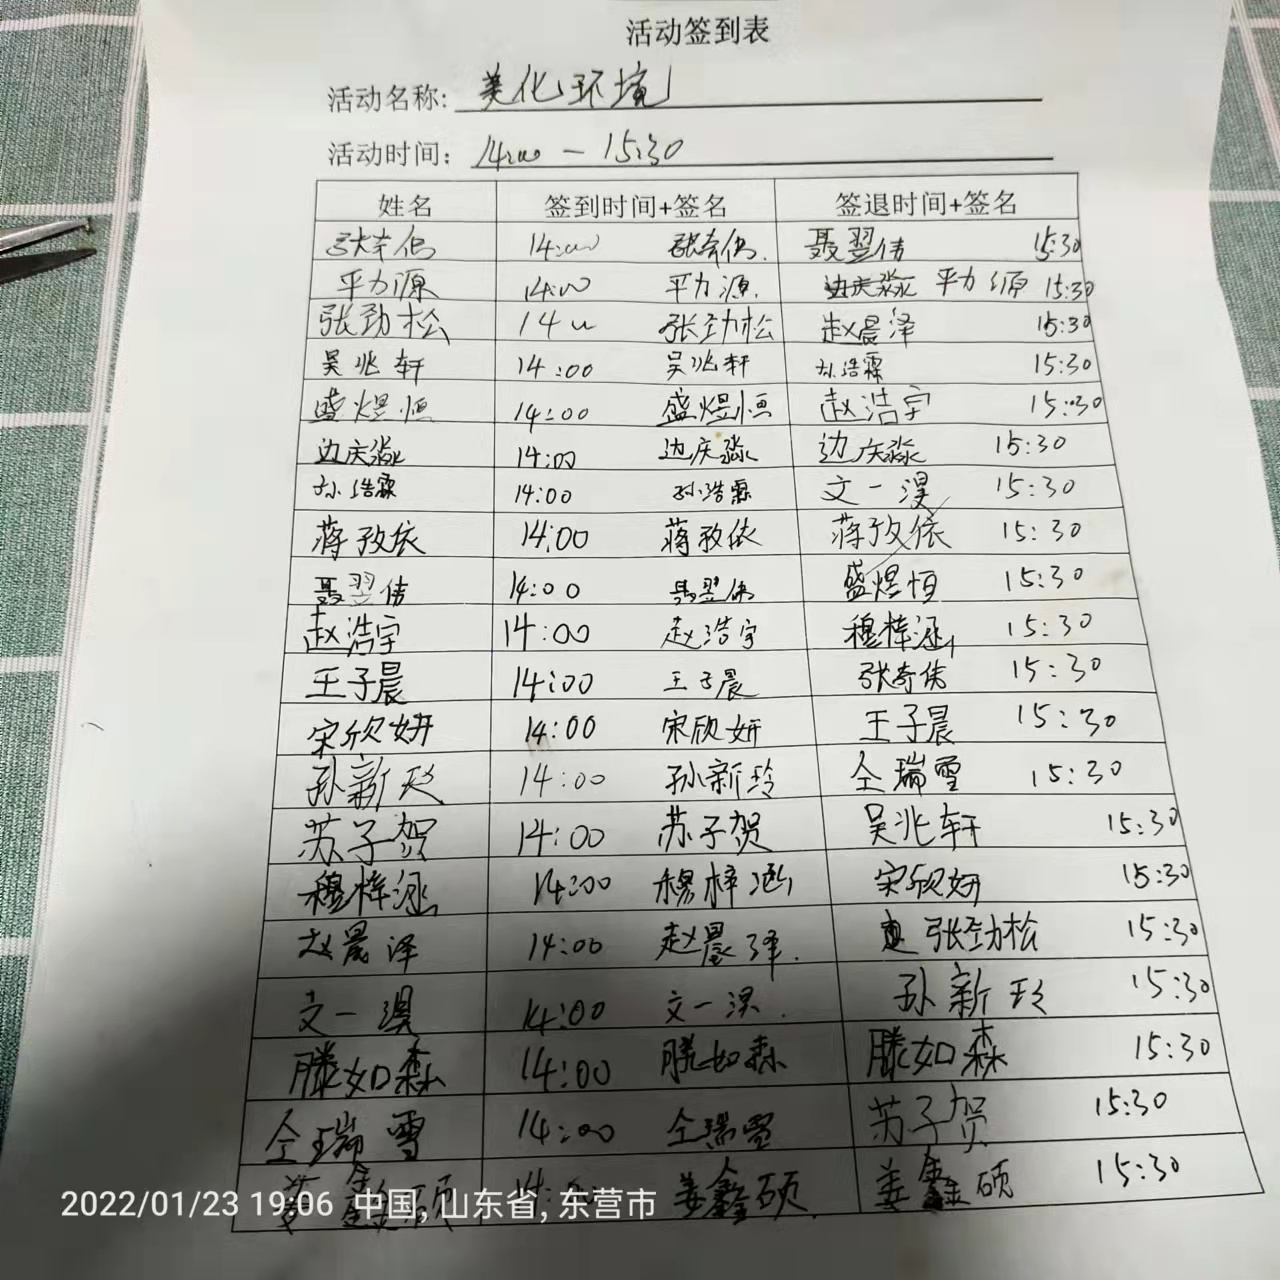 活动签到表
活动名称: 美化环境
活动时间: 14:00 — 15:30
姓名 签到时间+签名 签退时间+签名
张奇伟 14:00 张奇伟. 聂翌伟 15:30
平力源 14:00 平力源. 边庆淼 平力源 15:30
张劲松 14 张劲松 赵晨泽 15:30
吴兆轩 14:00 吴兆轩 孙浩霖 15:30
盛煜恒 14:00 盛煜恒 赵浩宇 15:30
边庆淼 14:00 边庆淼 边庆淼 15:30
孙浩霖 14:00 孙浩霖 文一淏 15:30
蒋孜依 14:00 蒋孜依 蒋孜依 15:30
聂翌伟 14:00 聂翌伟 盛煜恒 15:30
赵浩宇 14:00 赵浩宇 穆梓涵 15:30
王子晨 14:00 王子晨 张奇伟 15:30
宋欣妍 14:00 宋欣妍 王子晨 15:30
孙新玲 14:00 孙新玲 仝瑞雪 15:30
苏子贺 14:00 苏子贺 吴兆轩 15:30
穆梓涵 14:00 穆梓涵 宋欣妍 15:30
赵晨泽 14:00 赵晨泽. 张劲松 15:30
文一淏 14:00 文一淏. 孙新玲 15:30
滕如森 14:00 滕如森 滕如森 15:30
仝瑞雪 14:00 仝瑞雪 苏子贺 15:30
姜鑫硕 14:00 姜鑫硕. 姜鑫硕 15:30
2022/01/23 19:06 中国, 山东省, 东营市